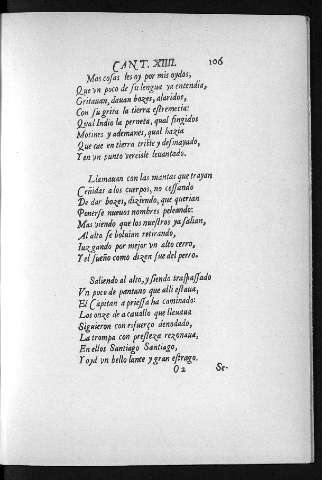 CANT. XIIII. 106
Mas cosas les oy por mis oydos,
Que vn poco de su lengua ya entendia,
Gritauan, dauan bozes, alaridos,
Con su grita la tierra estremecia:
Qual Indio la perneta, qual fingidos
Motines y ademanes, qual hazia
Que cae en tierra triste y desmayado,
Y en vn punto vereisle leuantado.
Llamauan con las mantas que trayan
Ceñidas a los cuerpos, no cessando
De dar bozes, diziendo, que querian
Ponerse nueuos nombres peleando:
Mas viendo que los nuestros ya salian,
Al alto se boluian retirando,
Iuzgando por mejor vn alto cerro,
Y el sueño como dizen fue del perro.
Saliendo al alto, y siendo traspassado
Vn poco de pantano que alli estaua,
El Capitan a priessa ha caminado:
Los onze de a cauallo que lleuaua
Siguieron con esfuerço denodado,
La trompa con presteza rezonaua,
En ellos Santiago Santiago,
Y oyd vn bello lance y gran estrago.
O 2 Se-